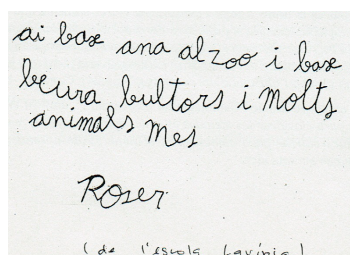 ai bax ana al zoo i bax
beura bultors i molts
animals mes
Roser
(de l'escola Lavínia)